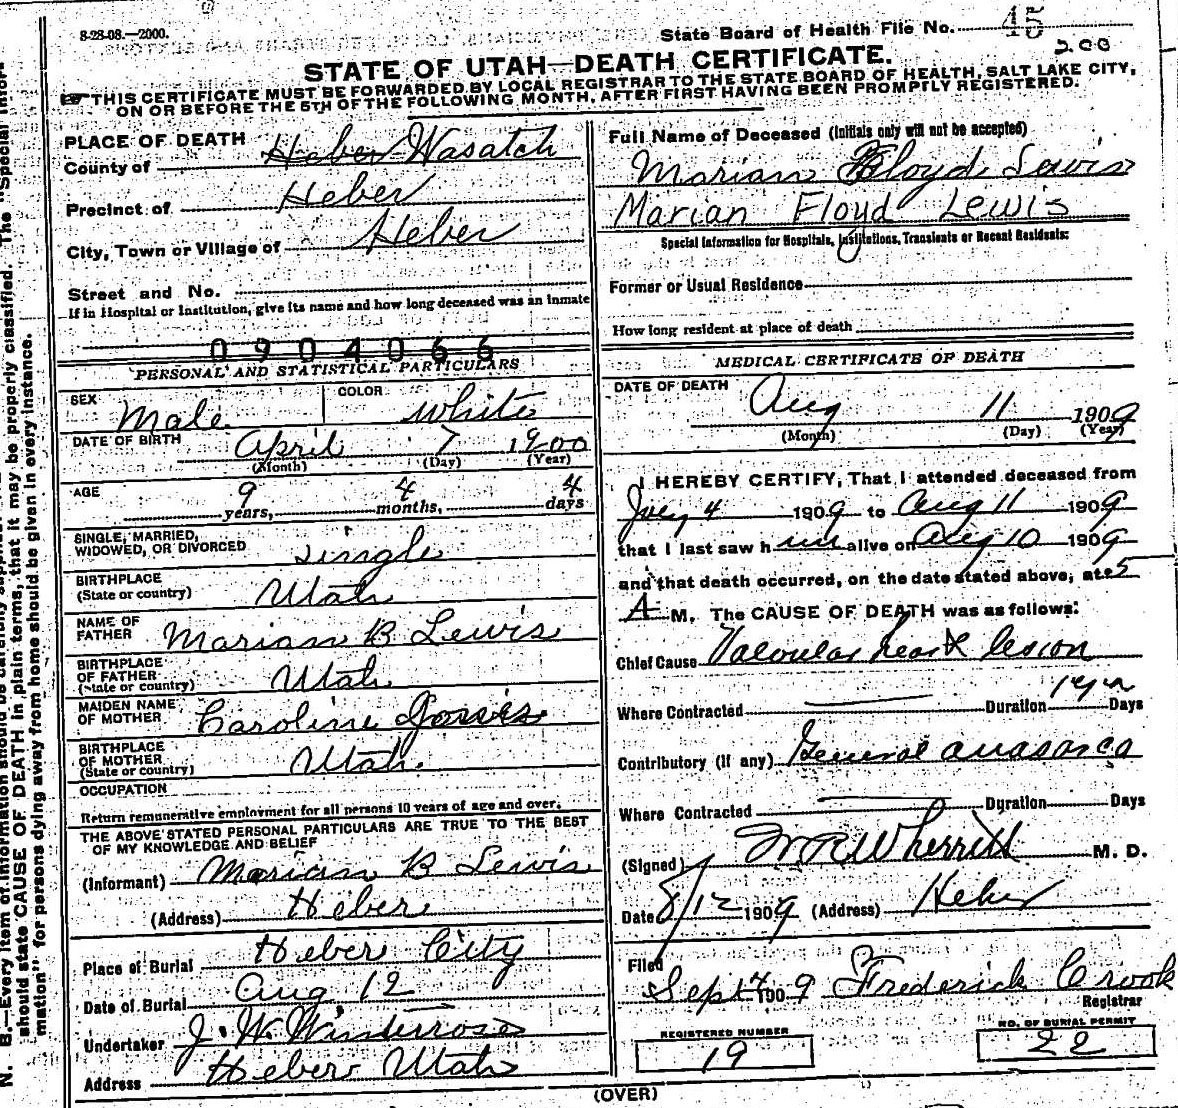 8-28-08.—2000.
State Board of Health File No. 45
200
STATE OF UTAH—DEATH CERTIFICATE.
THIS CERTIFICATE MUST BE FORWARDED BY LOCAL REGISTRAR TO THE STATE BOARD OF HEALTH, SALT LAKE CITY,
ON OR BEFORE THE 5TH OF THE FOLLOWING MONTH, AFTER FIRST HAVING BEEN PROMPTLY REGISTERED.
PLACE OF DEATH
County of Heber Wasatch
Precinct of Heber
City, Town or Village of Heber
Street and No.
If in Hospital or Institution, give its name and how long deceased was an inmate
0904066
PERSONAL AND STATISTICAL PARTICULARS
SEX Male COLOR White
DATE OF BIRTH April 7 1900
(Month) (Day) (Year)
AGE 9 years, 4 months, 4 days
SINGLE, MARRIED,
WIDOWED, OR DIVORCED Single
BIRTHPLACE
(State or country) Utah
NAME OF
FATHER Marian B Lewis
BIRTHPLACE
OF FATHER
(State or country) Utah
MAIDEN NAME
OF MOTHER Caroline
BIRTHPLACE
OF MOTHER
(State or country) Utah.
OCCUPATION
Return remunerative employment for all persons 10 years of age and over.
THE ABOVE STATED PERSONAL PARTICULARS ARE TRUE TO THE BEST
OF MY KNOWLEDGE AND BELIEF
(Informant) Marian B Lewis
(Address) Heber
Place of Burial Heber City
Date of Burial Aug 12
Undertaker J. W. Winterrose
Address Heber Utah
Full Name of Deceased (Initials only will not be accepted)
Marian Floyd Lewis
Marian Floyd Lewis
Special Information for Hospitals, Institutions, Transients or Recent Residents:
Former or Usual Residence
How long resident at place of death
MEDICAL CERTIFICATE OF DEATH
DATE OF DEATH
Aug 11 1909
(Month) (Day) (Year)
I HEREBY CERTIFY, That I attended deceased from
July 4 1909 to Aug 11 1909
that I last saw him alive on Aug 10 1909
and that death occurred, on the date stated above, at 5
A M. The CAUSE OF DEATH was as follows:
Chief Cause Valvular heart lesion
Where Contracted Duration 1 yr Days
Contributory (if any) General anasarca
Where Contracted Duration Days
(Signed) Wherritt M. D.
Date 8/12 1909 (Address) Heber
Filed
Sept 4 1909 Frederick Crook
Registrar
REGISTERED NUMBER
19
NO. OF BURIAL PERMIT
22
(OVER)
N. B.—Every item of information should be carefully supplied.
should state CAUSE OF DEATH in plain terms, that it may be properly classified. The "Special Infor-
mation" for persons dying away from home should be given in every instance.